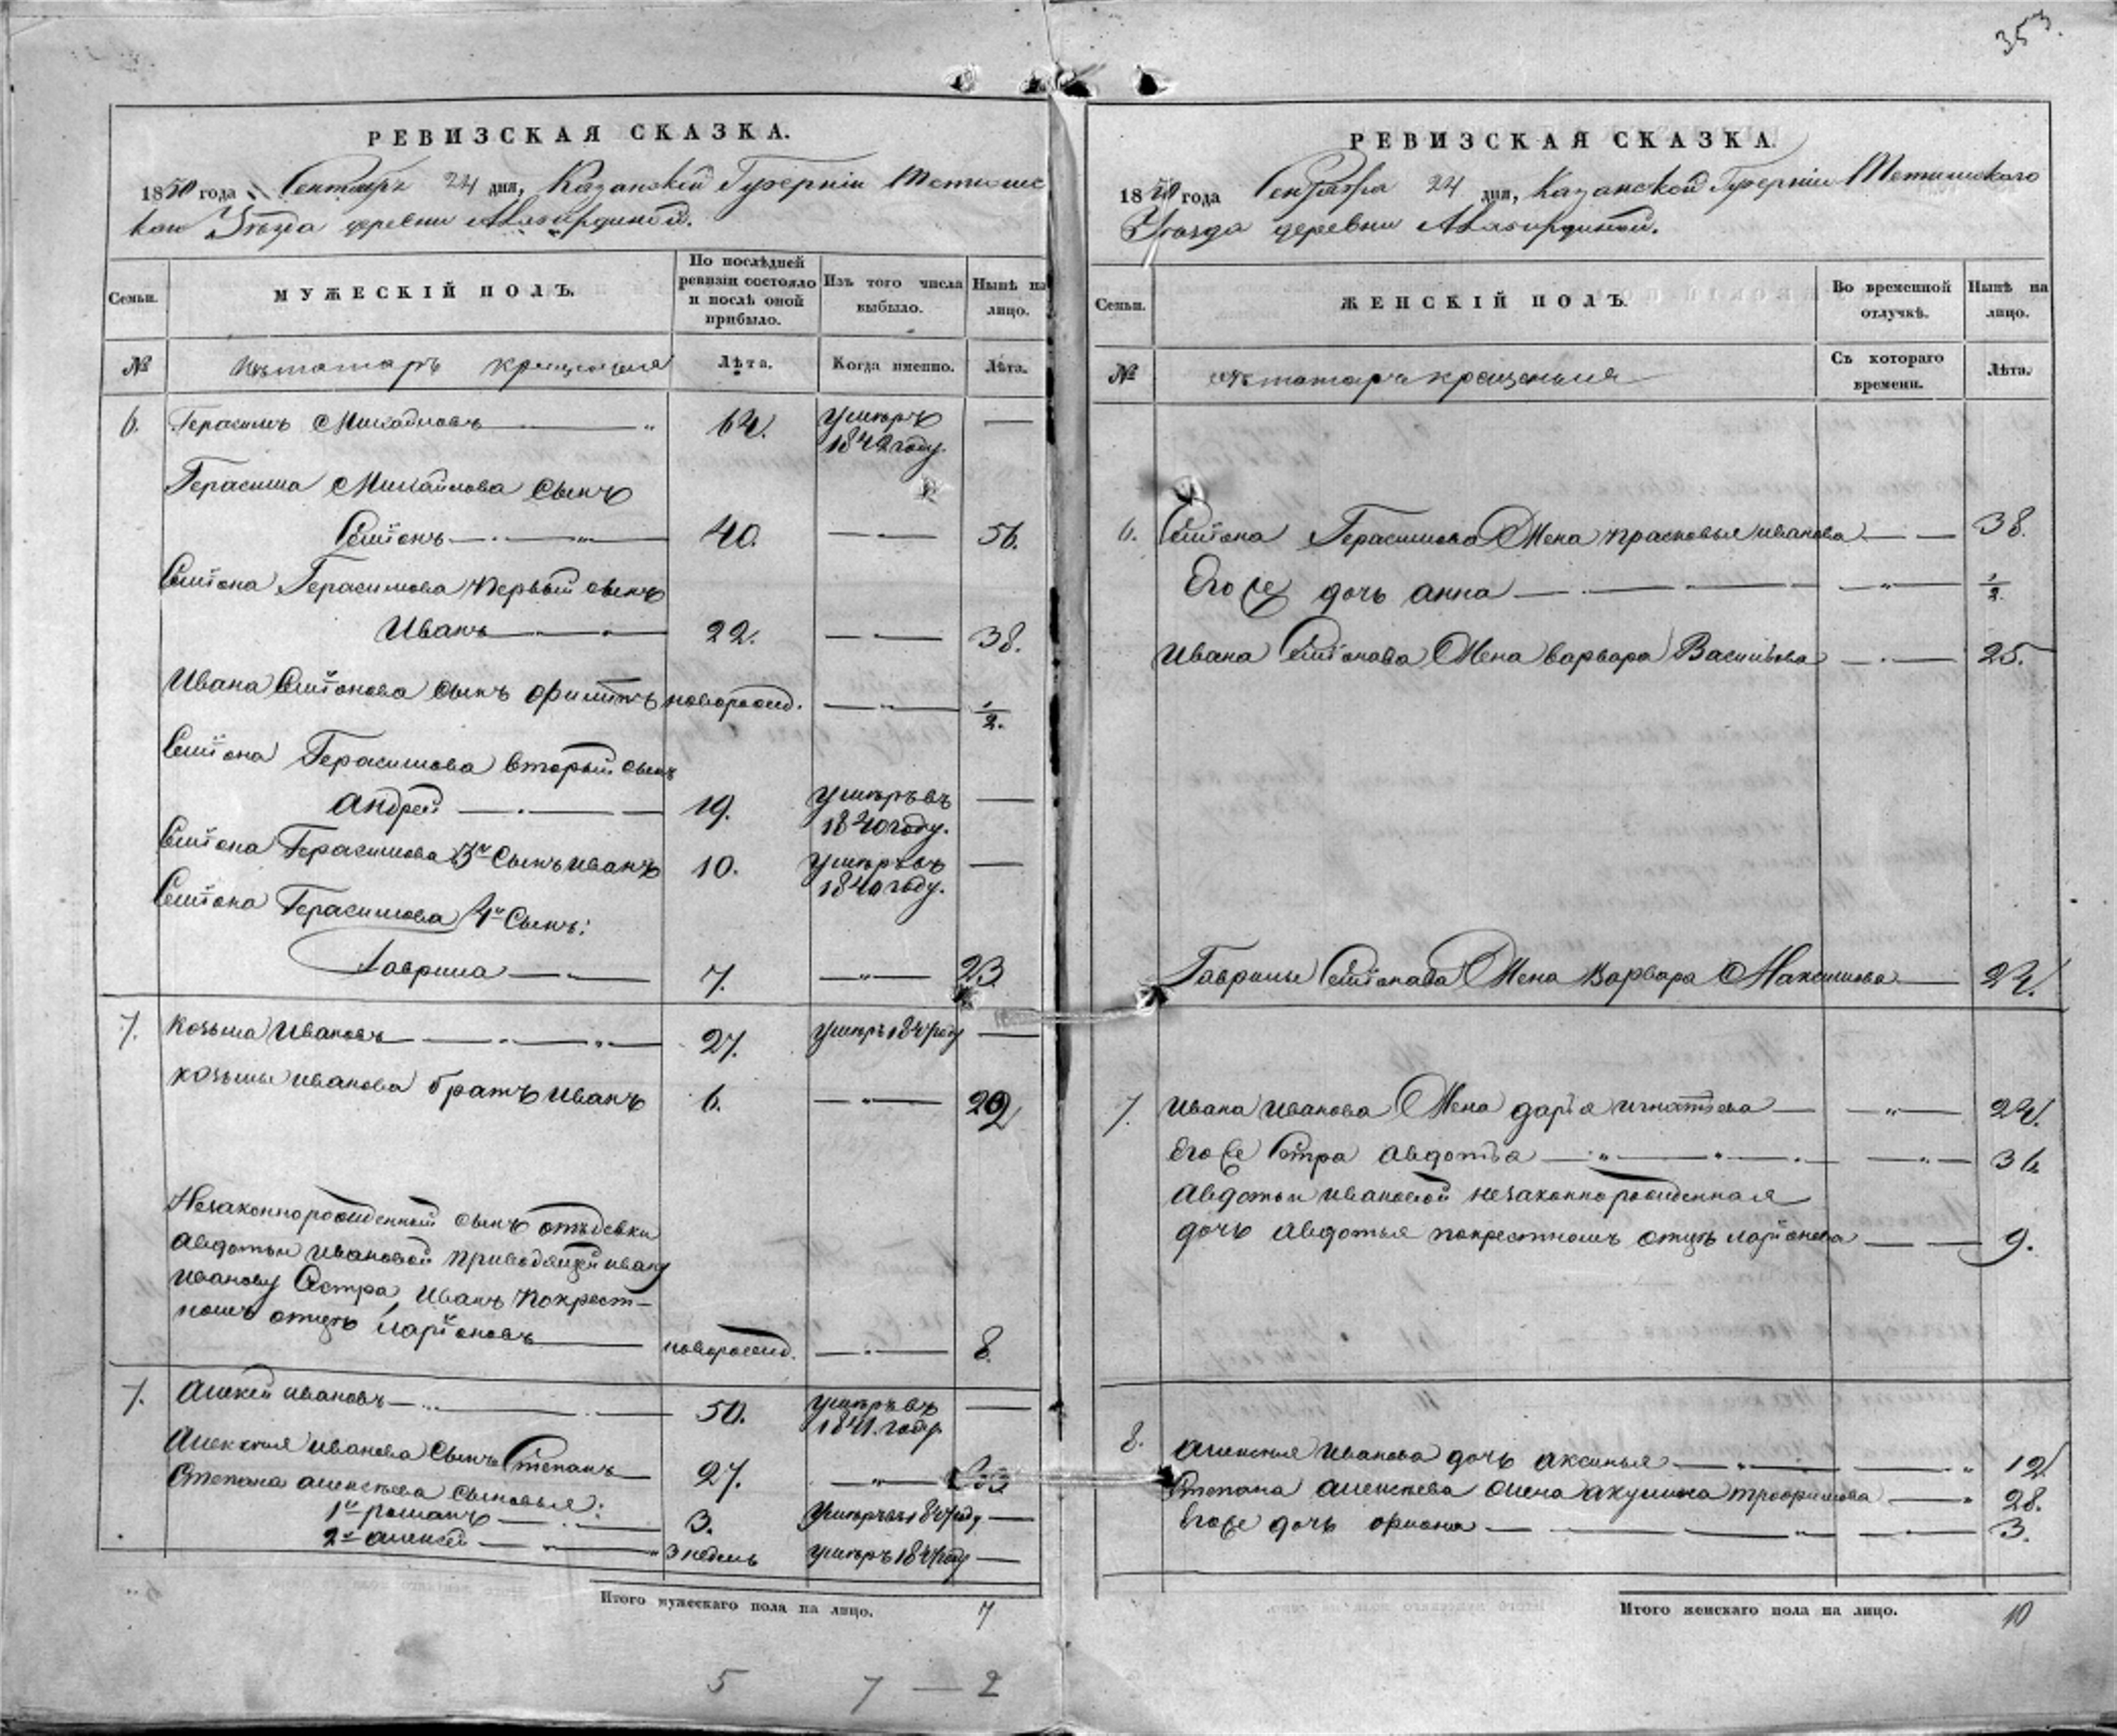 353.
РЕВИЗСКАЯ СКАЗКА.
1850 года Сентября 24 дня, Казанской Губернiи Тетюшс
каго Уѣзда деревни
Семьи.
МУЖЕСКIЙ ПОЛЪ.
По послѣдней ревизiи состояло и послѣ оной прибыло.
Изъ того числа выбыло.
Нынѣ на лицо.
№
Изъ татаръ крещеныя
Лѣта.
Когда именно.
Лѣта.
6. Герасимъ Михайловъ — 64. умеръ —
1842 году.
Герасима Михайлова сынъ
Семiонъ — 40. — 56.
Семiона Герасимова первый сынъ
Иванъ — 22. — 38.
Ивана Семiонова сынъ Филипъ новорожд. — 1/2.
Семiона Герасимова вторый сынъ
Андрей — 19. умеръ въ —
1840 году.
Семiона Герасимова 3й Сынъ иванъ 10. умеръ въ —
1840 году.
Семiона Герасимова 4й Сынъ:
Гаврила — 7. — 23.
7. Козьма Ивановъ — 27. умеръ 1847 году —
Козьмы иванова братъ иванъ 6. — 22
Незаконнорожденный сынъ отъ девки
авдотьи ивановой приводящей ивану
иванову Сестра, иванъ покрест-
номъ отцѣ Ларiоновъ — новорожд. — 8.
7. Алексей ивановъ — 50. умеръ въ —
1841 году
Алексея Иванова Сынъ Степанъ 27. —
Степана алексеева сыновья:
1й романъ — 3. умеръ 1847 году —
2й алексей — 3 недель умеръ 1847 году —
Итого мужескаго пола на лицо. 7
5 7 — 2
РЕВИЗСКАЯ СКАЗКА.
1850 года Сентября 24 дня, Казанской Губернiи Тетюшскаго
Уѣзда деревни
Семьи.
ЖЕНСКIЙ ПОЛЪ.
Во временной отлучкѣ.
Нынѣ на лицо.
№
Изъ татаръ крещеныя
Съ котораго времени.
Лѣта.
6. Семiона Герасимова Жена прасковья иванова — 38.
Его же дочь анна — 1/2.
Ивана Семiонова Жена варвара Васильева — 25.
Гаврилы Семiонова Жена Варвара Максимова — 24.
7. Ивана Иванова Жена дарiя игнатiева — 24.
Его же Сестра авдотья — 36
авдотьи ивановой незаконнорожденная
дочь авдотья покрестномъ отцѣ ларiонова — 9.
8. Алексея Иванова дочь аксинья — 12
Степана алексеева жена акулина трофимова — 28.
Его же дочь — 3.
Итого женскаго пола на лицо. 10